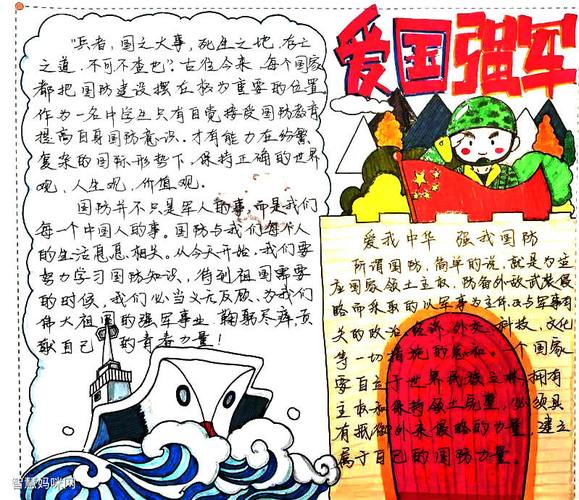 爱国强军
"兵者,国之大事,死生之地,存亡
之道,不可不查也"?古往今来,每个国家
都把国防建设摆在极为重要的位置
作为一名中学生只有自觉接受国防教育
提高自身国防意识,才有能力在纷繁
复杂的国际形势下,保持正确的世界
观、人生观、价值观。
国防并不只是军人的事,而是我们
每一个中国人的事。国防与我们每个人
的生活息息相关。从今天开始,我们要
努力学习国防知识,待到祖国需要
的时候,我们必当义无反顾,为我们
伟大祖国的强军事业,鞠躬尽瘁,贡
献自己的青春力量!
爱我中华 强我国防
所谓国防,简单的说,就是为捍
卫国家领土主权,防备外敌武装侵
略而采取的以军事为主体及与军事有
关的政治、经济、外交、科技、文化
等一切措施的总和。一个国家
要自立于世界民族之林,拥有
主权和保持领土完整,必须具
有抵御外来侵略的力量,建立
属于自己的国防力量。
智慧妈咪网